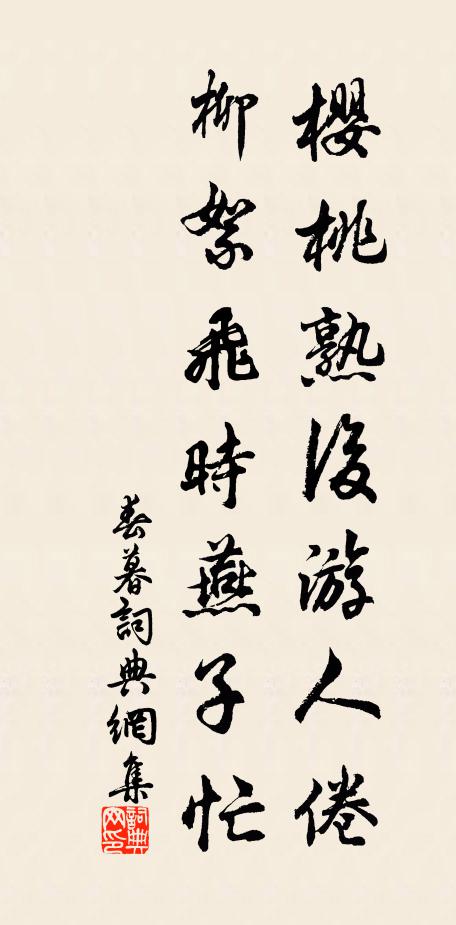 櫻桃熟後游人倦
柳絮飛時燕子忙
春暮詞典網集
詞典網印